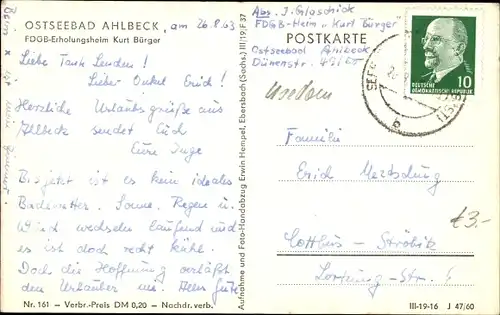 OSTSEEBAD AHLBECK, am 26.8.63
FDGB-Erholungsheim Kurt Bürger
Liebe Tante Lenchen!
Lieber Onkel Erich!
Herzliche Urlaubsgrüße aus
Ahlbeck sendet Euch
Eure Inge
Bis jetzt ist es kein ideales
Badewetter. Sonne, Regen u.
Wind wechseln laufend und
es ist doch recht kühl.
Doch die Hoffnung erhält
den Urlauber uns. Alles Gute
Nr. 161 — Verbr.-Preis DM 0,20 — Nachdr. verb.
Aufnahme und Foto-Handabzug Erwin Hempel, Ebersbach (Sachs.) III/19/F 37
Abs. J.
FDGB-Heim „Kurt Bürger"
Ostseebad Ahlbeck
Dünenstr.
POSTKARTE
Usedom
10
DEUTSCHE
DEMOKRATISCHE REPUBLIK
SEEB
b
Familie
Erich
Cottbus - Ströbitz
Lortzing-Str.
€3.-
III-19-16 J 47/60